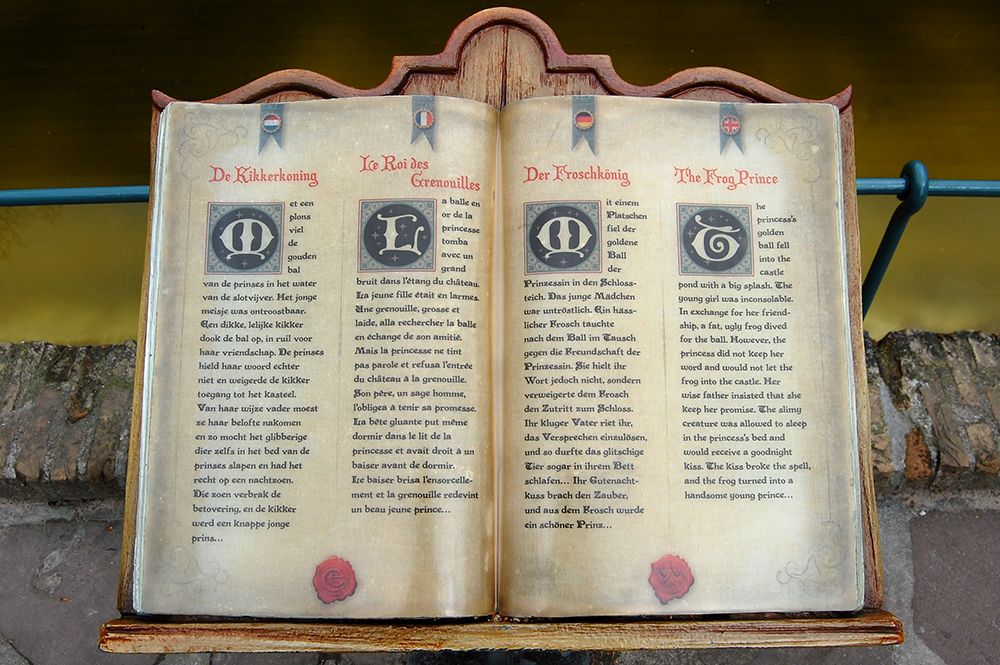 De Kikkerkoning
Met een
plons
viel
de
gouden
bal
van de prinses in het water
van de slotvijver. Het jonge
meisje was ontroostbaar.
Een dikke, lelijke kikker
dook de bal op, in ruil voor
haar vriendschap. De prinses
hield haar woord echter
niet en weigerde de kikker
toegang tot het kasteel.
Van haar wijze vader moest
ze haar belofte nakomen
en zo mocht het glibberige
dier zelfs in het bed van de
prinses slapen en had het
recht op een nachtzoen.
Die zoen verbrak de
betovering, en de kikker
werd een knappe jonge
prins...
Le Roi des
Grenouilles
La balle en
or de la
princesse
tomba
avec un
grand
bruit dans l'étang du château.
La jeune fille était en larmes.
Une grenouille, grosse et
laide, alla rechercher la balle
en échange de son amitié.
Mais la princesse ne tint
pas parole et refusa l'entrée
du château à la grenouille.
Son père, un sage homme,
l'obligea à tenir sa promesse.
La bête gluante put même
dormir dans le lit de la
princesse et avait droit à un
baiser avant de dormir.
Le baiser brisa l'ensorcelle-
ment et la grenouille redevint
un beau jeune prince...
Der Froschkönig
Mit einem
Platschen
fiel der
goldene
Ball
der
Prinzessin in den Schloss-
teich. Das junge Mädchen
war untröstlich. Ein häss-
licher Frosch tauchte
nach dem Ball im Tausch
gegen die Freundschaft der
Prinzessin. Sie hielt ihr
Wort jedoch nicht, sondern
verweigerte dem Frosch
den Zutritt zum Schloss.
Ihr kluger Vater riet ihr,
das Versprechen einzulösen,
und so durfte das glitschige
Tier sogar in ihrem Bett
schlafen... Ihr Gutenacht-
kuss brach den Zauber,
und aus dem Frosch wurde
ein schöner Prinz...
The Frog Prince
The
princess's
golden
ball fell
into the
castle
pond with a big splash. The
young girl was inconsolable.
In exchange for her friend-
ship, a fat, ugly frog dived
for the ball. However, the
princess did not keep her
word and would not let the
frog into the castle. Her
wise father insisted that she
keep her promise. The slimy
creature was allowed to sleep
in the princess's bed and
would receive a goodnight
kiss. The kiss broke the spell,
and the frog turned into a
handsome young prince...